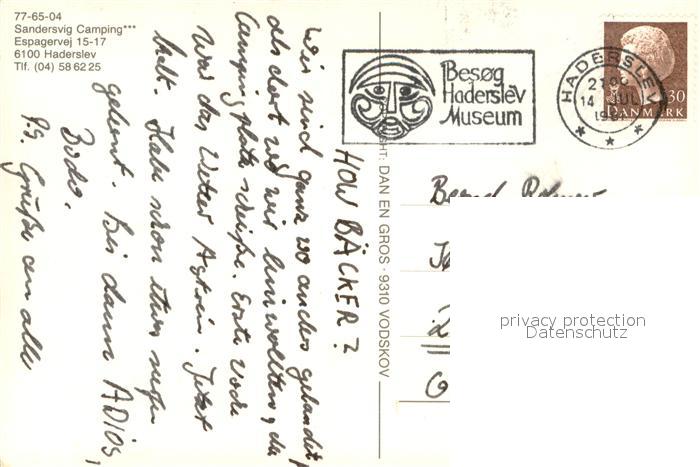 77-65-04
Sandersvig Camping***
Espagervej 15-17
6100 Haderslev
Tlf. (04) 58 62 25
HOW BÄCKER?
Wir sind ganz wo anders gelandet
als dort wo wir hin wollten, da
Campingplatz scheiße. Erste Woche
War das Wetter Astrein. Jetzt
kalt. Habe schon etwas
gelernt. Bis dann ADIOS,
Bodo.
P.S. Grüße an alle
COPYRIGHT: DAN EN GROS · 9310 VODSKOV
Besøg
Haderslev
Museum
HADERSLEV
14 JUL
30
DANMARK
Bernd
privacy protection
Datenschutz